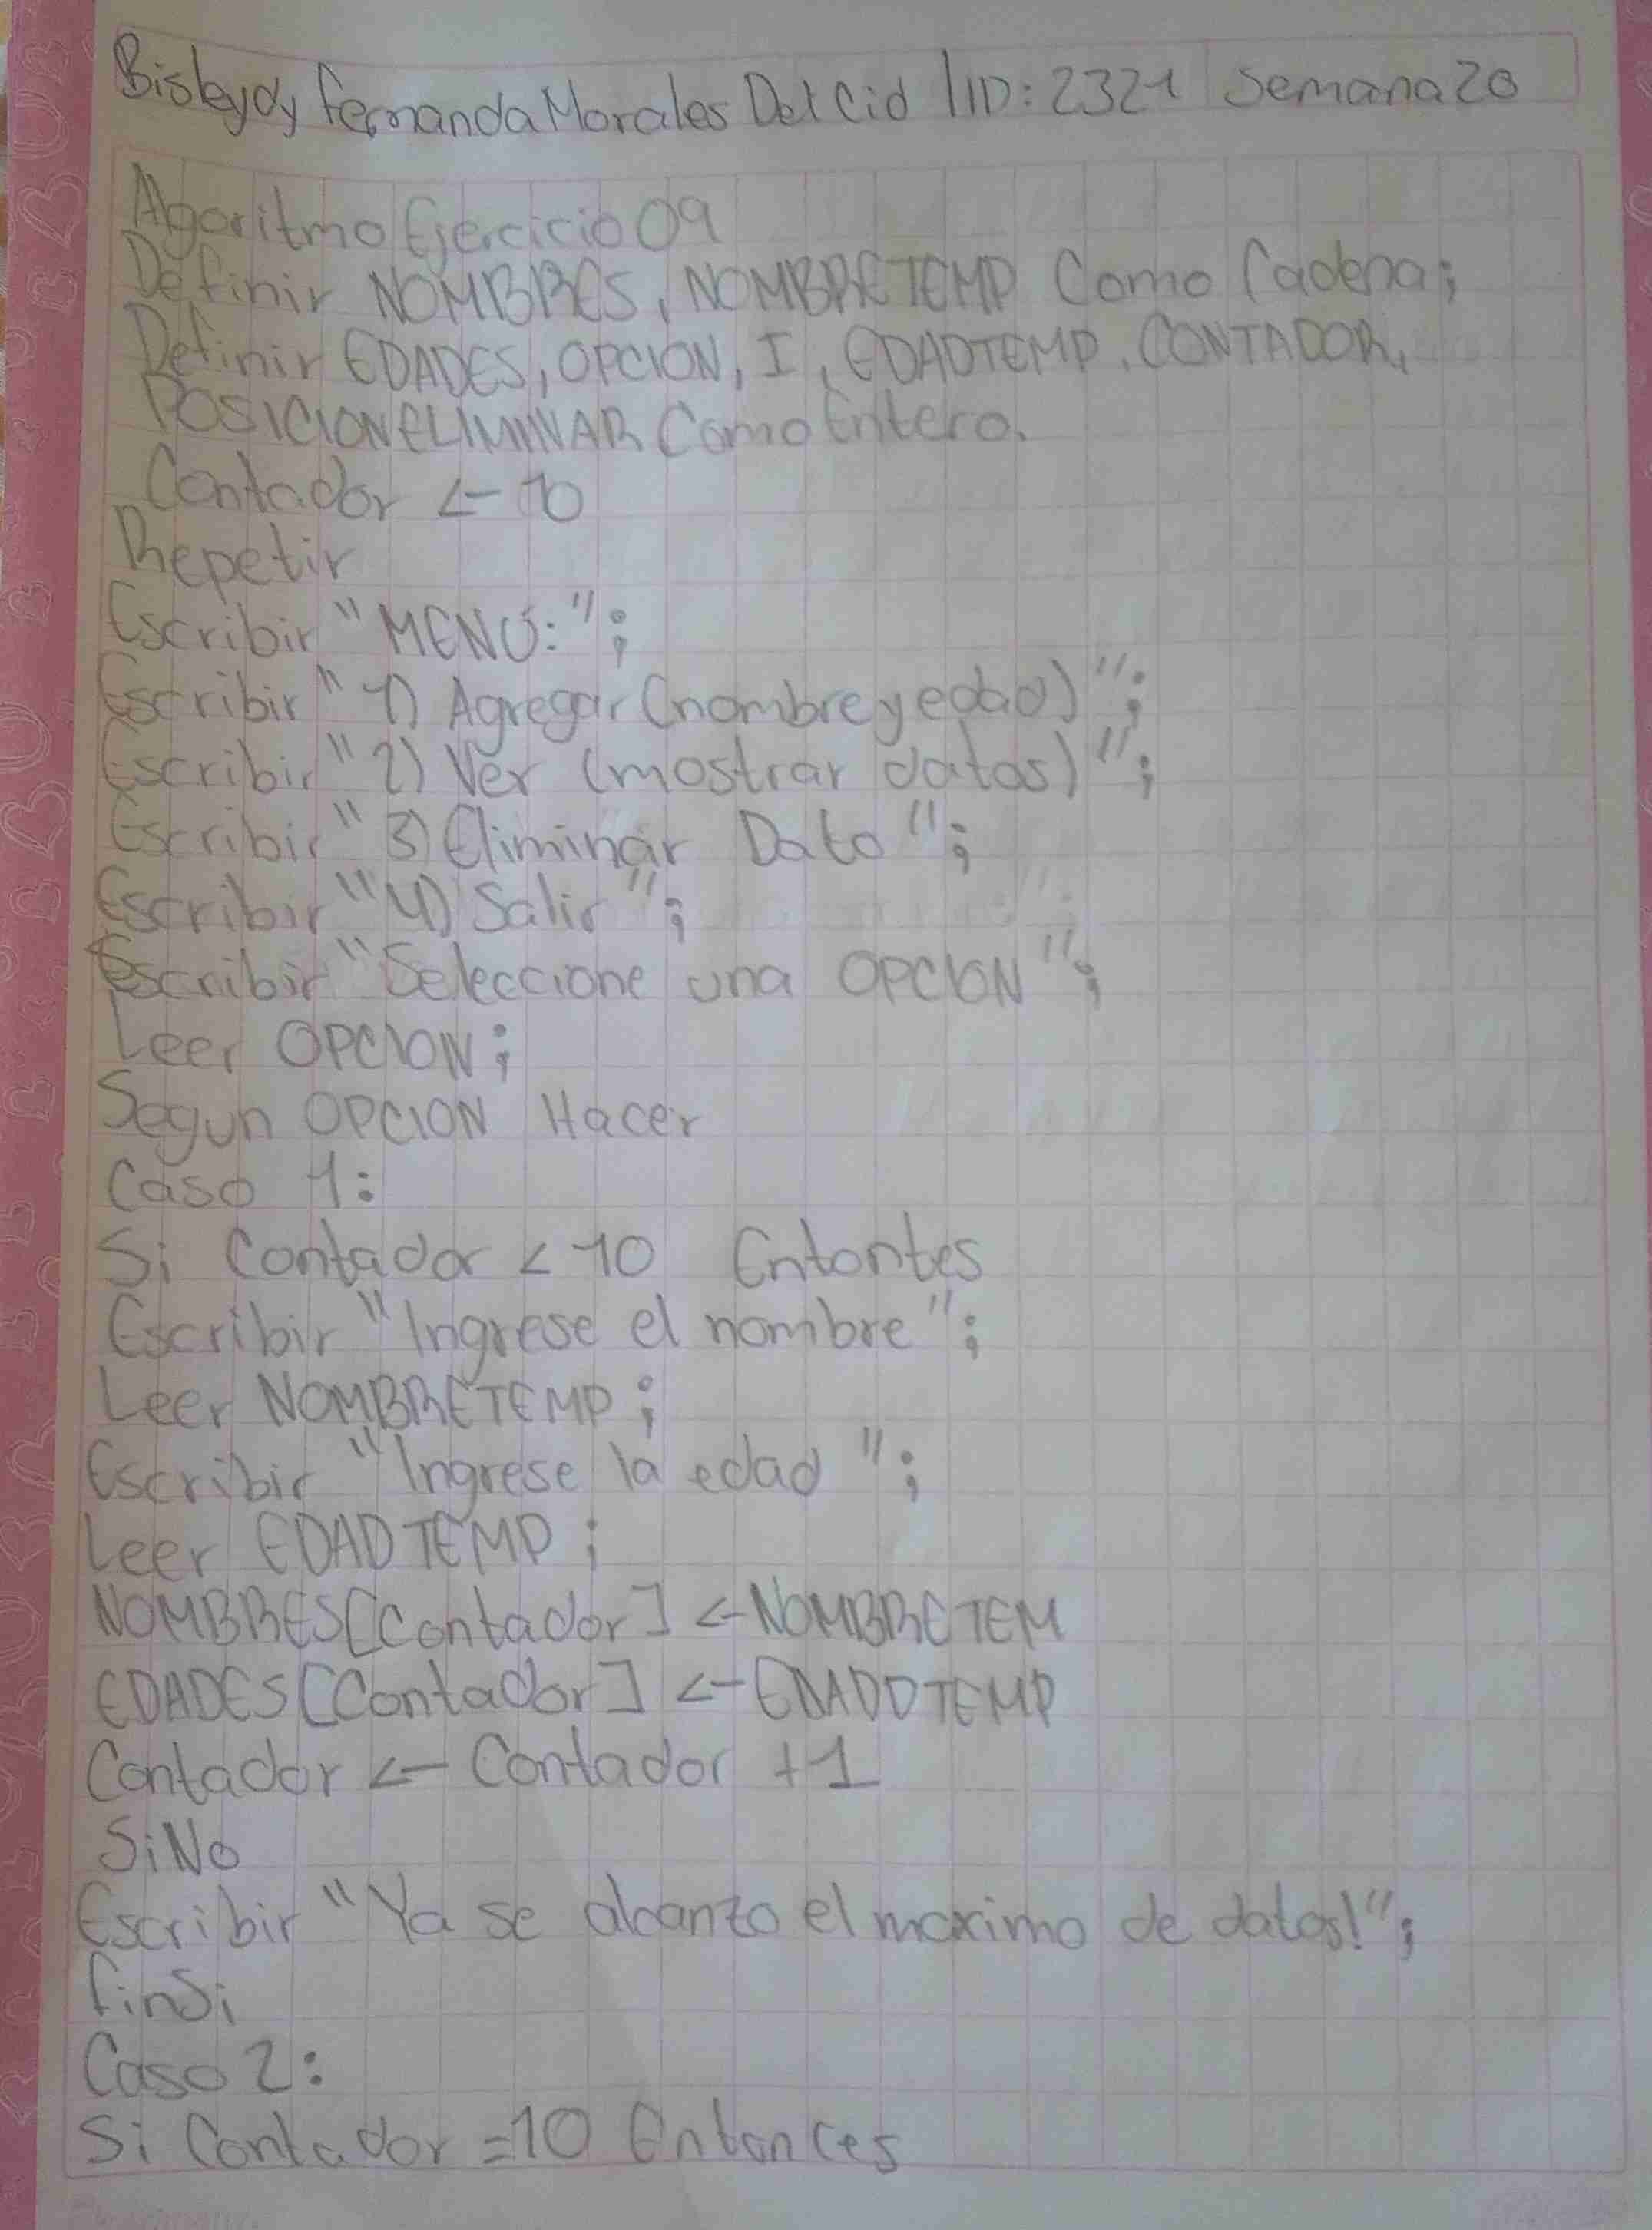 Bisleydy Fernanda Morales Del Cid |ID: 2321 | Semana 20
Algoritmo Ejercicio 09
Definir NOMBRES, NOMBRETEMP Como Cadena;
Definir EDADES, OPCION, I, EDADTEMP, CONTADOR,
POSICIONELIMINAR Como Entero.
Contador <- 10
Repetir
Escribir "MENÚ:";
Escribir "1) Agregar (nombre y edad)";
Escribir "2) Ver (mostrar datos)";
Escribir "3) Eliminar Dato";
Escribir "4) Salir";
Escribir "Seleccione una OPCION";
Leer OPCION;
Segun OPCION Hacer
Caso 1:
Si Contador < 10 Entontes
Escribir "Ingrese el nombre";
Leer NOMBRETEMP;
Escribir "Ingrese la edad";
Leer EDADTEMP;
NOMBRES[Contador] <- NOMBRETEM
EDADES[Contador] <- EDADDTEMP
Contador <- Contador +1
SiNo
Escribir "Ya se alcanzo el maximo de datos!";
FinSi
Caso 2:
Si Contador =10 Entonces